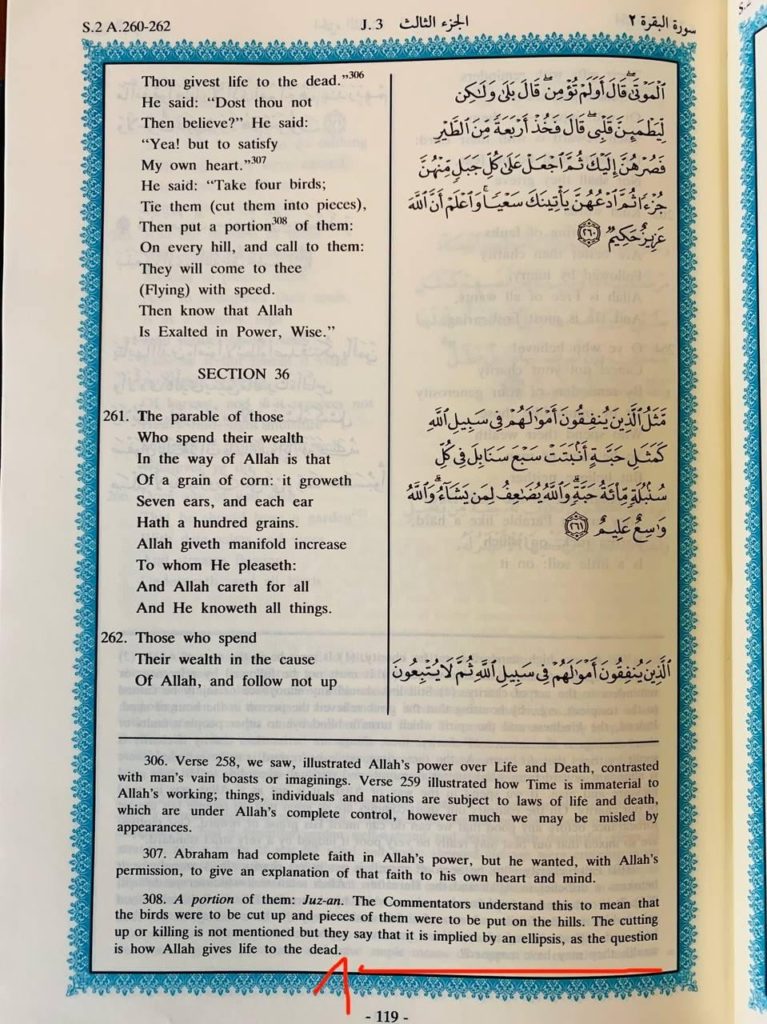 S.2 A.260-262 J. 3 الجزء الثالث سورة البقرة ٢
Thou givest life to the dead."306
He said: "Dost thou not
Then believe?" He said:
"Yea! but to satisfy
My own heart."307
He said: "Take four birds;
Tie them (cut them into pieces),
Then put a portion308 of them:
On every hill, and call to them:
They will come to thee
(Flying) with speed.
Then know that Allah
Is Exalted in Power, Wise."
ٱلْمَوْتَىٰ قَالَ أَوَلَمْ تُؤْمِن قَالَ بَلَىٰ وَلَٰكِن
لِّيَطْمَئِنَّ قَلْبِى قَالَ فَخُذْ أَرْبَعَةً مِّنَ ٱلطَّيْرِ
فَصُرْهُنَّ إِلَيْكَ ثُمَّ ٱجْعَلْ عَلَىٰ كُلِّ جَبَلٍ مِّنْهُنَّ
جُزْءًا ثُمَّ ٱدْعُهُنَّ يَأْتِينَكَ سَعْيًا وَٱعْلَمْ أَنَّ ٱللَّهَ
عَزِيزٌ حَكِيمٌ ٢٦٠
SECTION 36
261. The parable of those
Who spend their wealth
In the way of Allah is that
Of a grain of corn: it groweth
Seven ears, and each ear
Hath a hundred grains.
Allah giveth manifold increase
To whom He pleaseth:
And Allah careth for all
And He knoweth all things.
مَّثَلُ ٱلَّذِينَ يُنفِقُونَ أَمْوَٰلَهُمْ فِى سَبِيلِ ٱللَّهِ
كَمَثَلِ حَبَّةٍ أَنۢبَتَتْ سَبْعَ سَنَابِلَ فِى كُلِّ
سُنۢبُلَةٍ مِّا۟ئَةُ حَبَّةٍ وَٱللَّهُ يُضَٰعِفُ لِمَن يَشَآءُ وَٱللَّهُ
وَٰسِعٌ عَلِيمٌ ٢٦١
262. Those who spend
Their wealth in the cause
Of Allah, and follow not up
ٱلَّذِينَ يُنفِقُونَ أَمْوَٰلَهُمْ فِى سَبِيلِ ٱللَّهِ ثُمَّ لَا يُتْبِعُونَ
306. Verse 258, we saw, illustrated Allah's power over Life and Death, contrasted
with man's vain boasts or imaginings. Verse 259 illustrated how Time is immaterial to
Allah's working; things, individuals and nations are subject to laws of life and death,
which are under Allah's complete control, however much we may be misled by
appearances.
307. Abraham had complete faith in Allah's power, but he wanted, with Allah's
permission, to give an explanation of that faith to his own heart and mind.
308. A portion of them: Juz-an. The Commentators understand this to mean that
the birds were to be cut up and pieces of them were to be put on the hills. The cutting
up or killing is not mentioned but they say that it is implied by an ellipsis, as the question
is how Allah gives life to the dead.
- 119 -